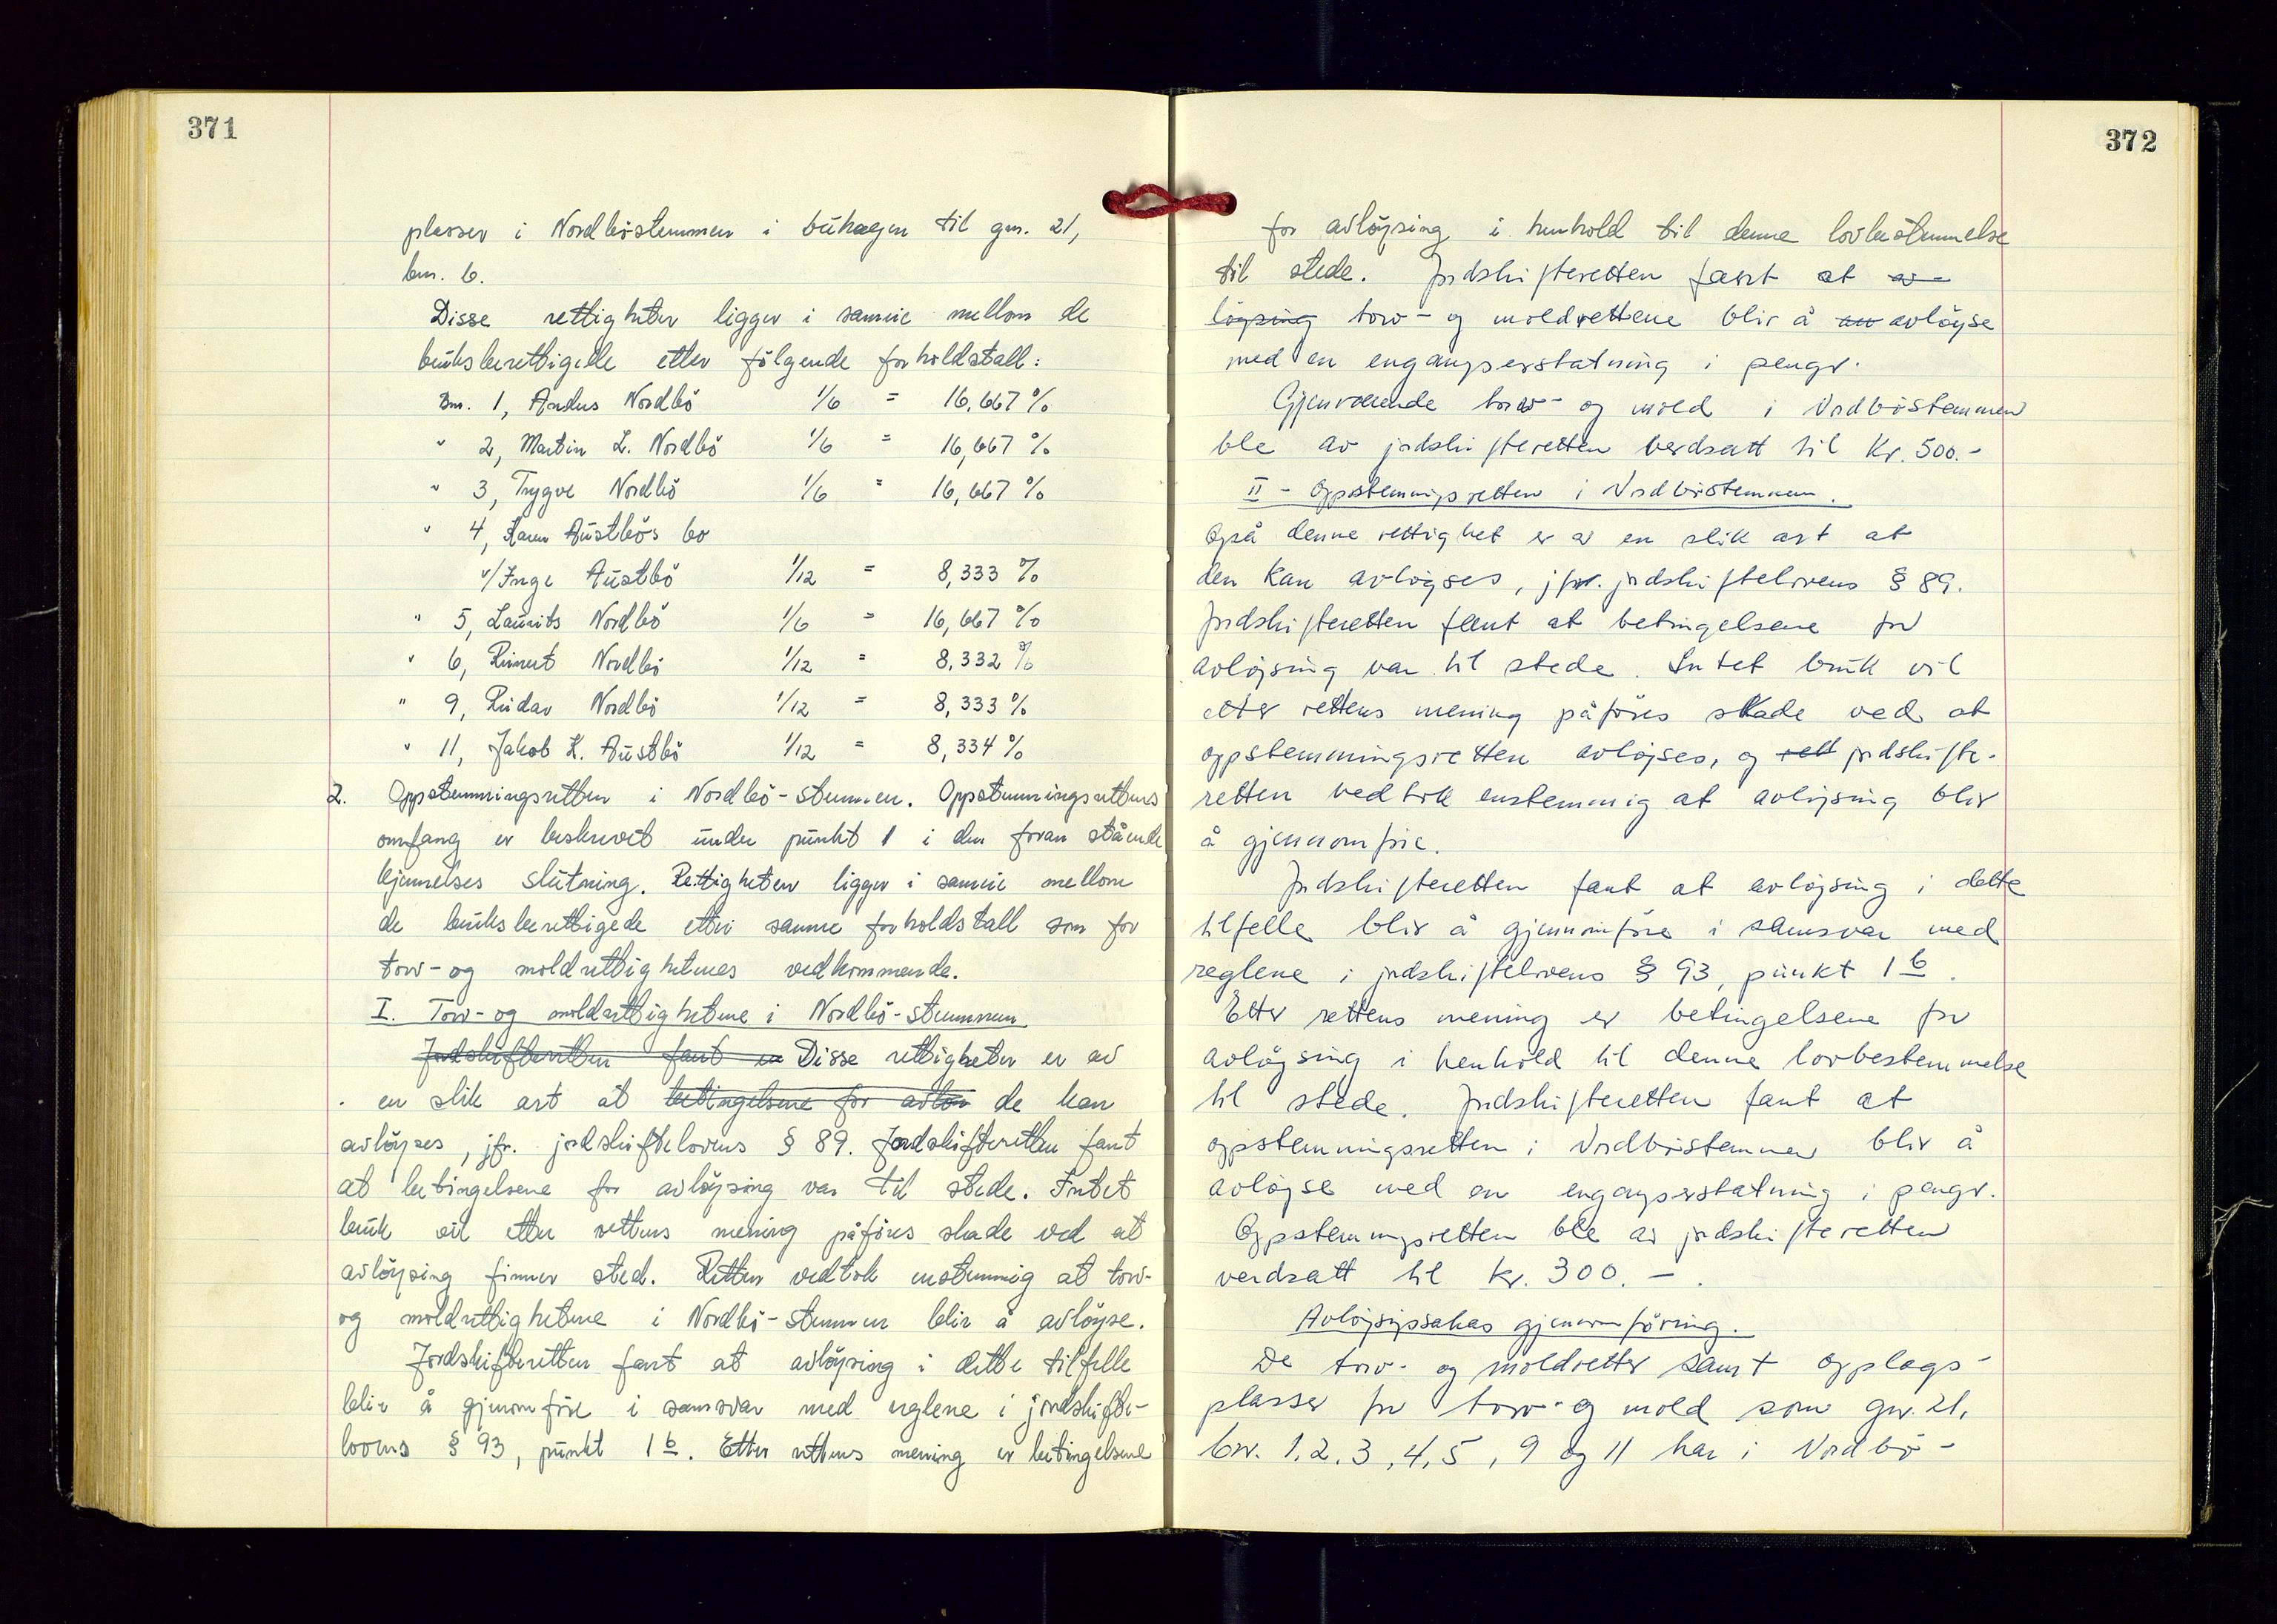 371
plasser i Nordböstemmen i buhagen til gnr. 21,
bnr. 6.
Disse rettigheter ligger i sameie mellom de
bruksberettigede etter fölgende forholdstall:
Bnr. 1, Andres Nordbö 1/6 = 16,667 %
" 2, Martin L. Nordbö 1/6 = 16,667 %
" 3, Trygve Nordbö 1/6 = 16,667 %
" 4, Karen Austbös bo
v/Inge Austbö 1/12 = 8,333 %
" 5, Laurits Nordbö 1/6 = 16,667 %
" 6, Reinert Nordbö 1/12 = 8,332 %
" 9, Reidar Nordbö 1/12 = 8,333 %
" 11, Jakob K. Austbö 1/12 = 8,334 %
2. Oppstemningsretten i Nordbö-stemmen. Oppstemningsrettens
omfang er beskrevet under punkt 1 i den foran stående
kjennelses slutning. Rettigheten ligger i sameie mellom
de bruksberettigede etter samme forholdstall som for
torv- og moldrettighetenes vedkommende.
I. Torv- og moldrettighetene i Nordbö-stemmen
Jordskifteretten fant en Disse rettigheter er av
en slik art at betingelsene for avlös de kan
avlöyses, jfr. jordskiftelovens § 89. Jordskifteretten fant
at betingelsene for avlöysing var til stede. Intet
bruk vil etter rettens mening påföres skade ved at
avlöysing finner sted. Retten vedtok enstemmig at torv-
og moldrettighetene i Nordbö-stemmen blir å avlöyse.
Jordskifteretten fant at avlöysing i dette tilfelle
blir å gjennomföre i samsvar med reglene i jordskifte-
lovens § 93, punkt 1 b. Etter rettens mening er betingelsene
372
for avlöysing i henhold til denne lovbestemmelse
til stede. Jordskifteretten fant at av-
löysing torv- og moldrettene blir å av avlöyse
med en engangserstatning i penger.
Gjenværende torv- og mold i Nordböstemmen
ble av jordskifteretten verdsatt til Kr. 500.-
II - Oppstemningsretten i Nordböstemmen.
Også denne rettighet er av en slik art at
den kan avlöyses, jfr. jordskiftelovens § 89.
Jordskifteretten fant at betingelsene for
avlöysing var til stede. Intet bruk vil
etter rettens mening påföres skade ved at
oppstemmingsretten avlöyses, og rett jordskifte-
retten vedtok enstemmig at avlöysing blir
å gjennomföre.
Jordskifteretten fant at avlöysing i dette
tilfelle blir å gjennomföre i samsvar med
reglene i jordskiftelovens § 93, punkt 1 b.
Etter rettens mening er betingelsene for
avlöysing i henhold til denne lovbestemmelse
til stede. Jordskifteretten fant at
oppstemningsretten i Nordböstemmen blir å
avlöyse med en engangserstatning i penger.
Oppstemningsretten ble av jordskifteretten
verdsatt til kr. 300.-.
Avlöysingssakas gjennomföring.
De torv- og moldretter samt opplags-
plasser for torv- og mold som gnr. 21,
bnr. 1, 2, 3, 4, 5, 9 og 11 har i Nordbö-